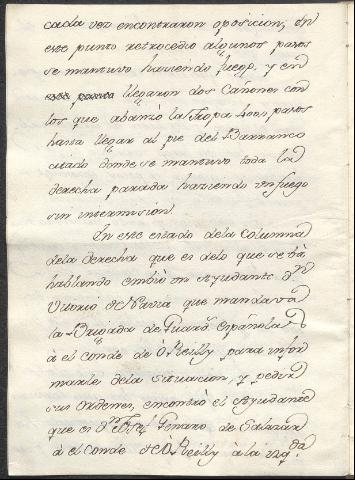 cada vez encontraron oposicion; En
este punto retrocedio algunos pasos
se mantuvo haziendo fuego, y en
llegaron dos Cañones con
los que abanzó la Tropa 400, pasos
hasta llegar al pie del Barranco
citado donde se mantuvo toda la
derecha parada haziendo un fuego
sin intermision.
En este estado de la Columna
dela derecha que es delo que se bá
hablando embió un Ayudante Dn
Vitorio de Navia que mandava
la Brigada de Guards Españolas
à el Conde de O Reilly para infor
marle dela situacion, y pedir
sus ordenes, encontró el Ayudante
que es Dn Genaro de Salazar
à el Conde de O Reilly à la izqda